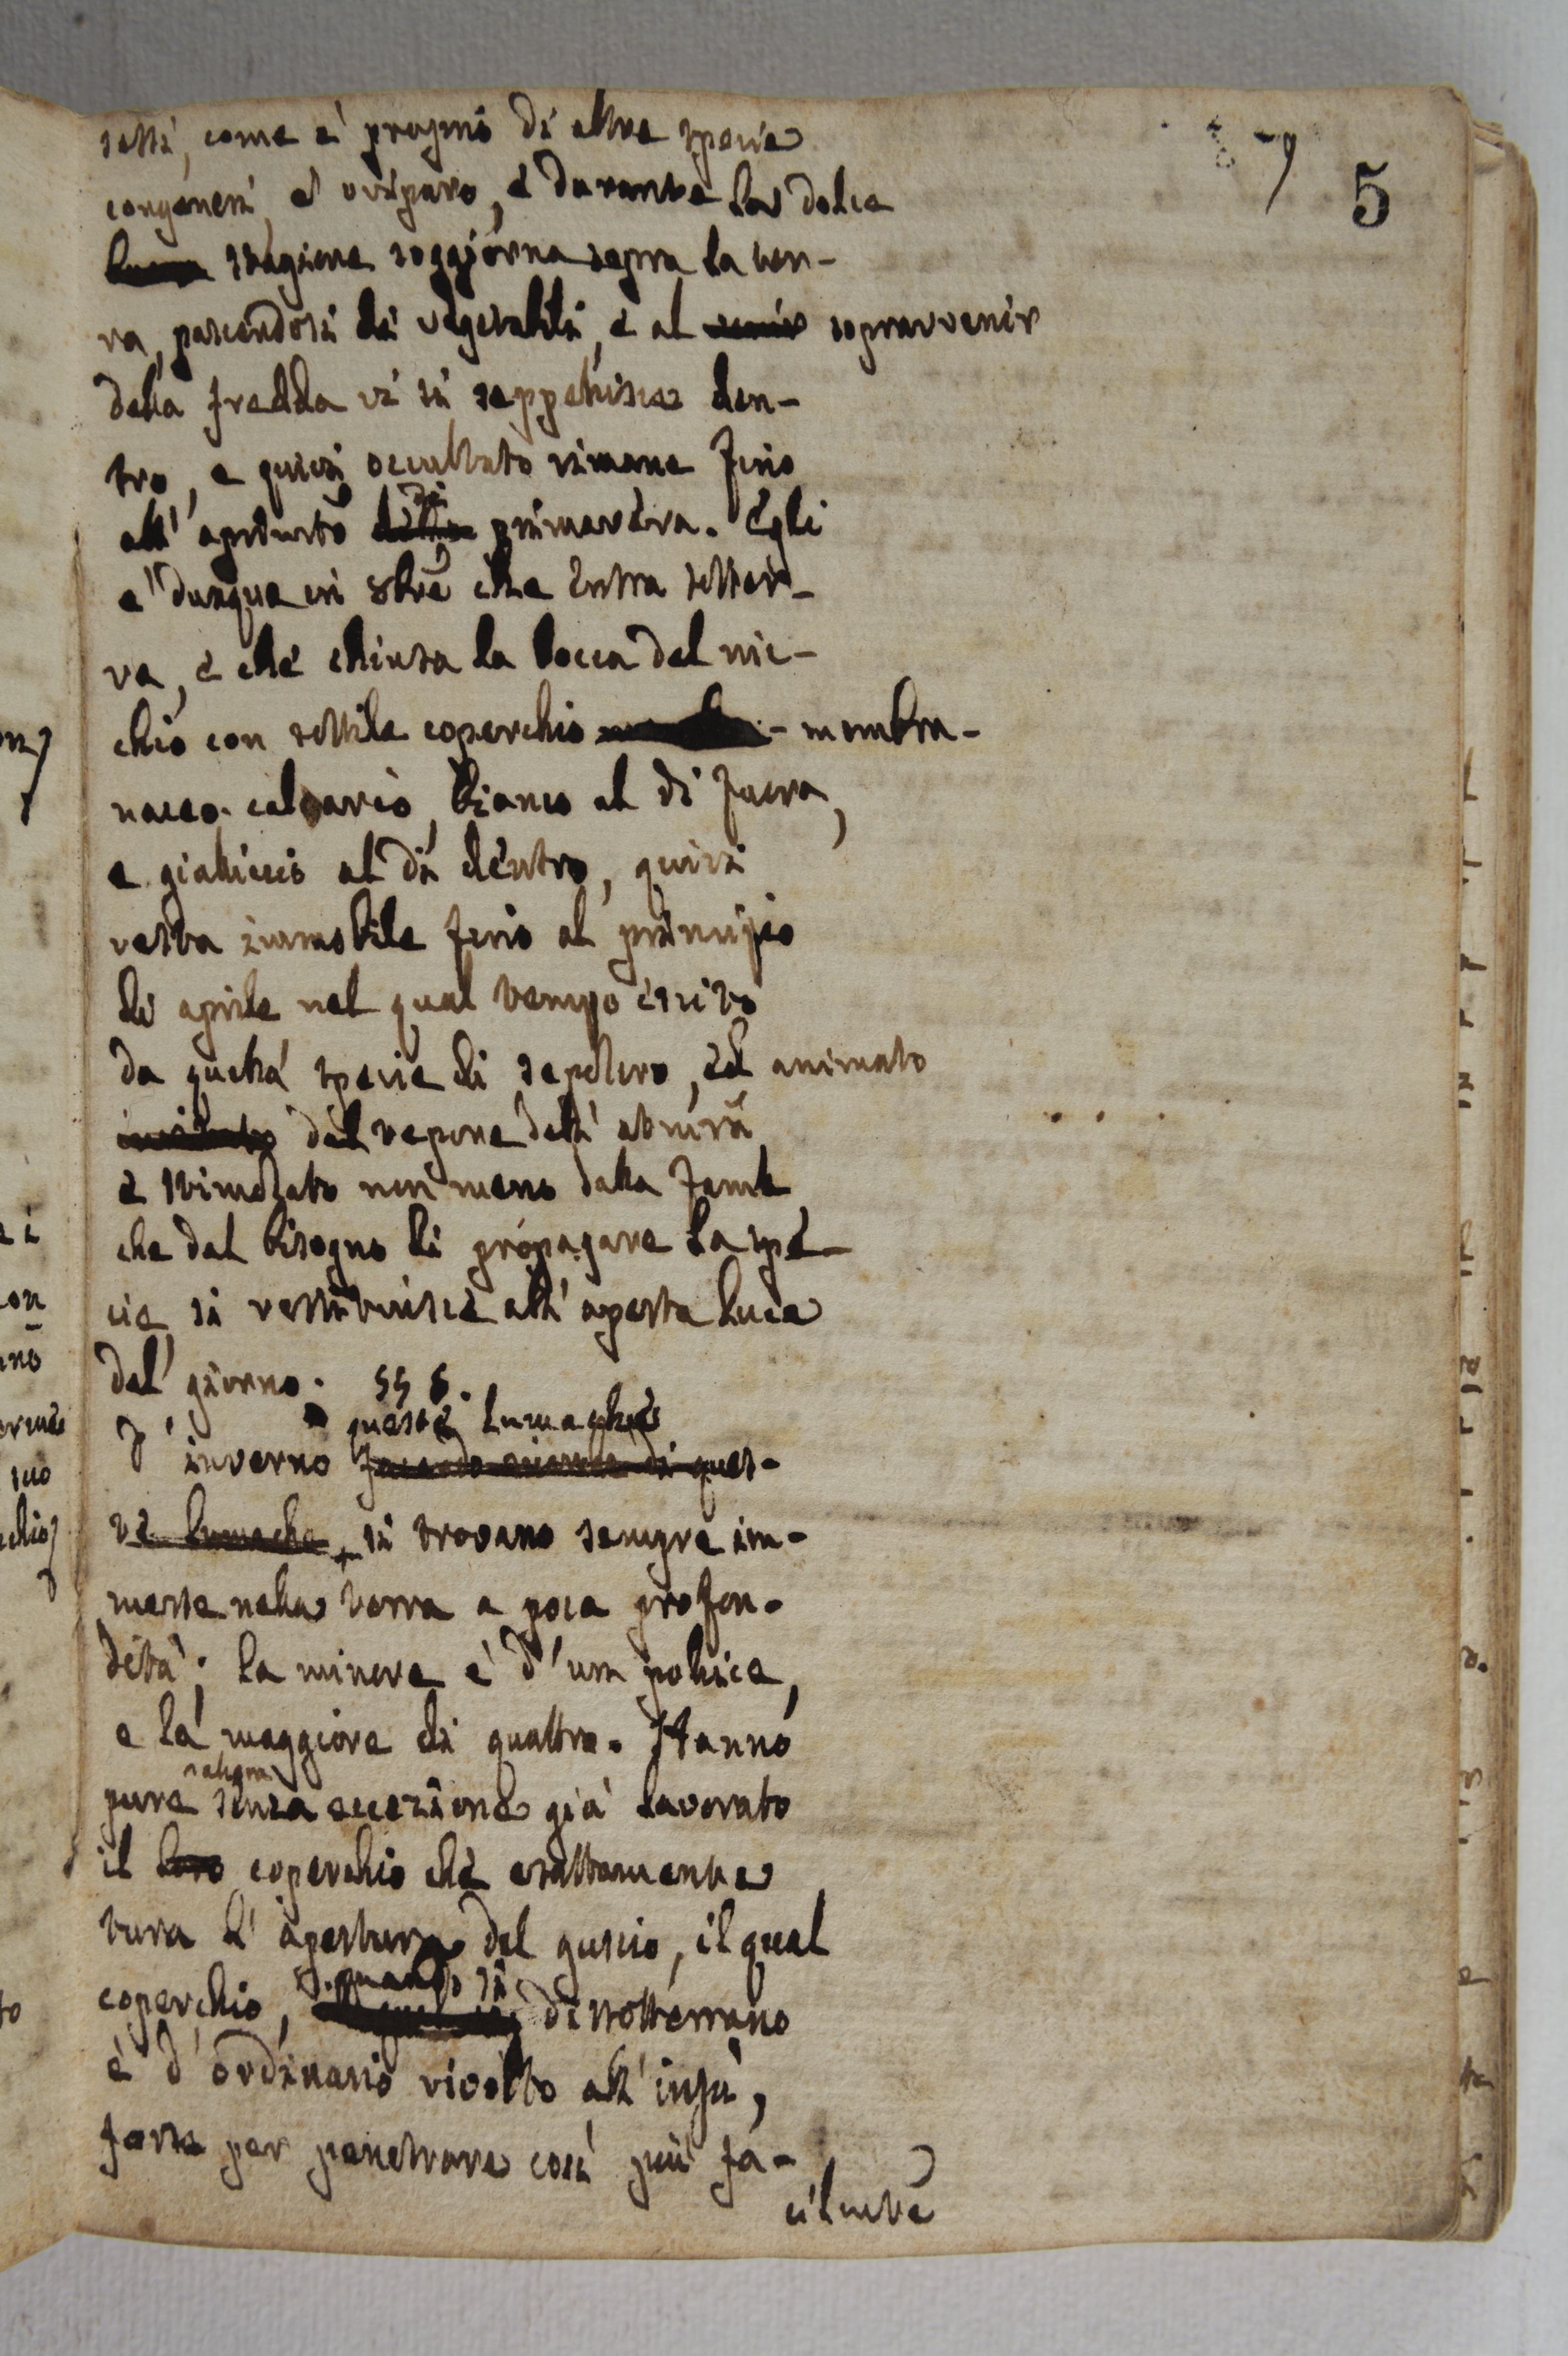 7 5
setti, come è proprio di altre specie
congeneri, è oviparo, e durante la dolce
buona stagione soggiorna sopra la ter-
ra, pascendosi di vegetabili, e al venir sopravvenir
della fredda vi si seppellisce den-
tro, e quivi occultato rimane fino
all' apritura di primavera. Egli
e' dunque in 8bre che entra sotter-
ra, e che chiusa la bocca del nic-
chio con sottile coperchio membra-
naceo-calcario, bianco al di fuora,
e gialliccio al di dentro, quivi
resta immobile fino al principio
di aprile nel qual tempo escito
da quella specie di sepolcro, ed animato
dal tepore dell' atmosfa
e stimolato non meno dalla fame
che dal bisogno di propagare la spe-
cie, si restituisce all' aperta luce
del giorno. §§ 6.
queste lumache
D' inverno facendo ricerca di ques-
te lumache + si trovano sempre im-
merse nella terra a poca profon-
dità; la minore è d' un pollice,
e la maggiore di quattro. Hanno
pure senza eccezione già lavorato
il loro coperchio che esattamente
tura l' apertura del guscio, il qual
quando si
coperchio, disotterrano
è d' ordinario rivolto all' insù,
forse per penetrare così più fa-
cilmte